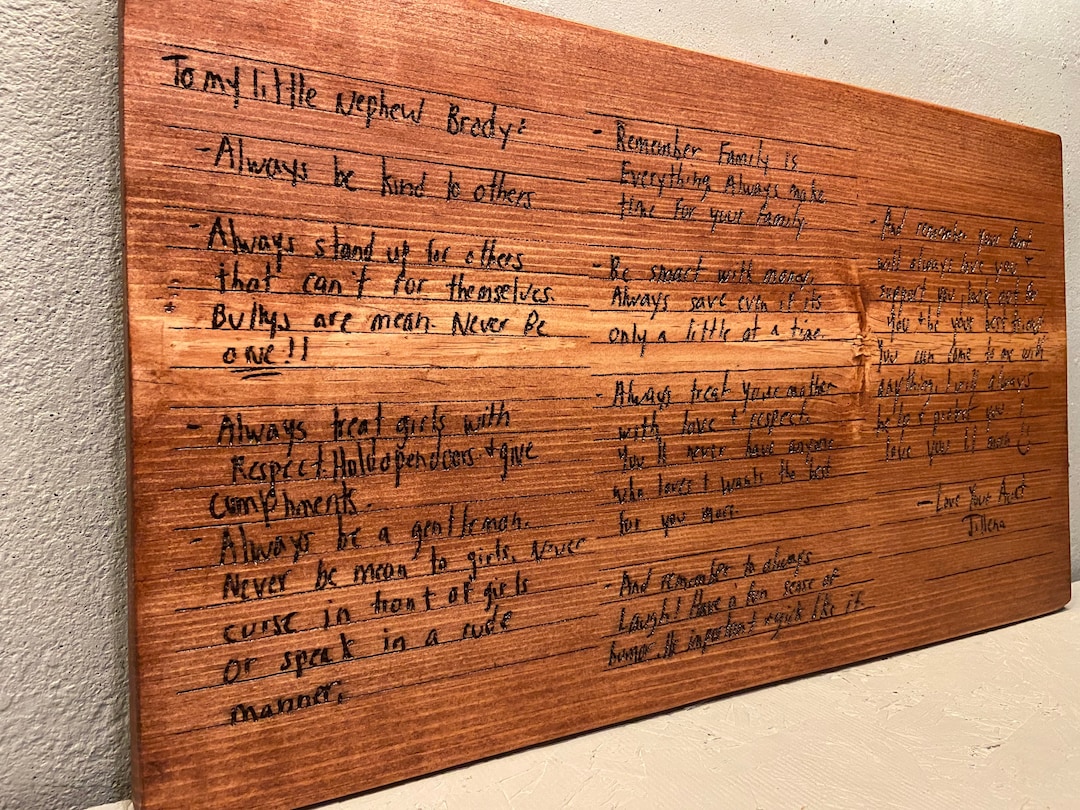 To my little Nephew Brody:
- Always be kind to others
- Always stand up for others
that can't for themselves.
Bullys are mean. Never Be
one!!
- Always treat girls with
Respect. Hold open doors + give
compliments.
- Always be a gentleman.
Never be mean to girls. Never
curse in front of girls
or speak in a rude
manner.
- Remember Family is
Everything Always make
time For your Family
- Be smart with money.
Always save even if its
only a little at a time.
- Always treat your mother
with love + respect.
You'll never have anyone
who loves + wants the best
for you more.
- And remember to always
Laugh! Have a fun sense of
humor.
- And remember your Aunt
will always love you +
support you, look out for
You + be your
You can come to me with
anything, I will always
help + protect you I
love you so much
- Love Your Aunt
Jillena